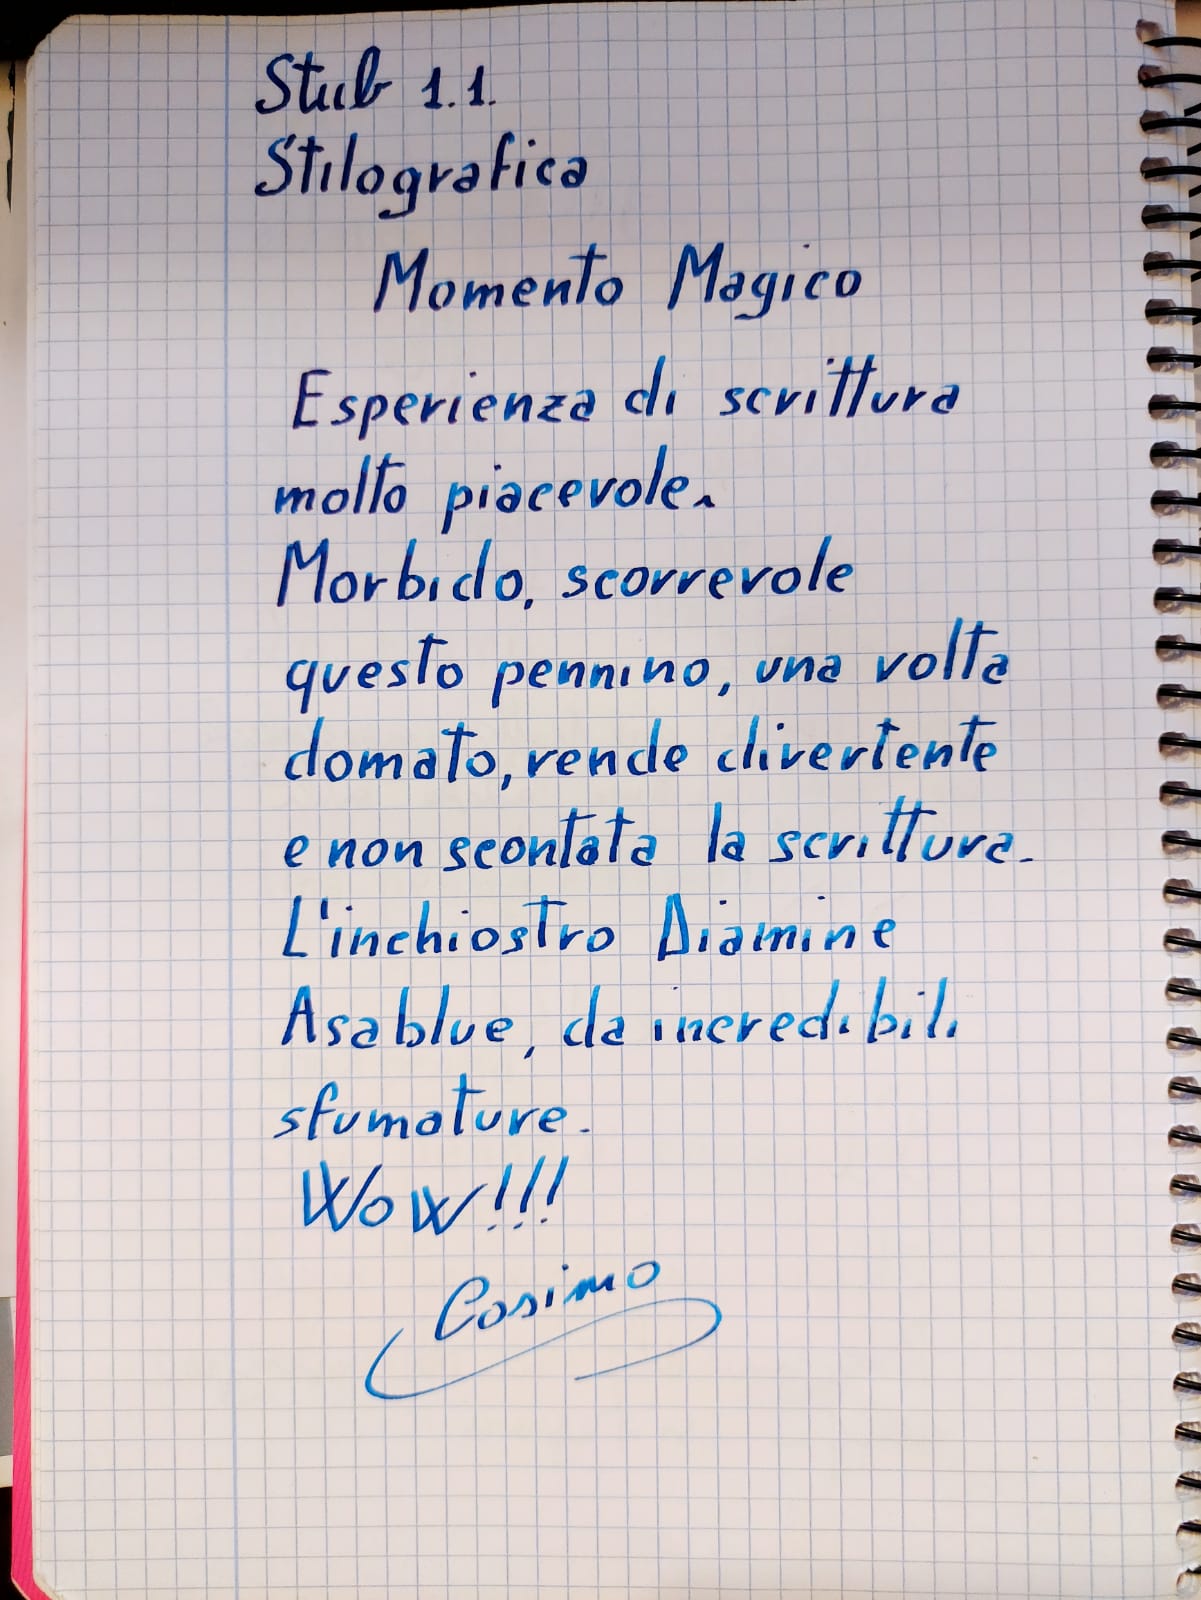 Stub 1.1.
Stilografica
Momento Magico
Esperienza di scrittura
molto piacevole.
Morbido, scorrevole
questo pennino, una volta
domato, rende divertente
e non scontata la scrittura.
L'inchiostro Diamine
Asa blue, da incredibili
sfumature.
Wow!!!
Cosimo